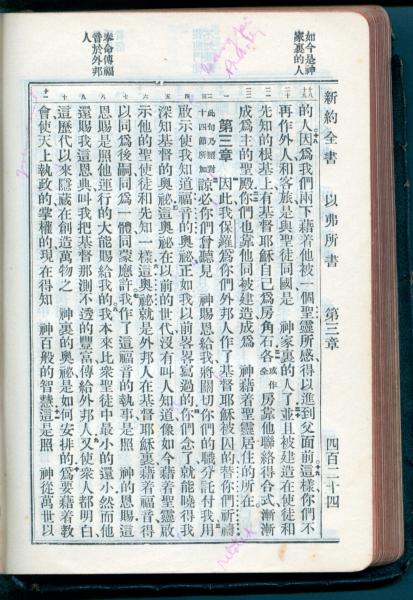 新約全書 以弗所書 第三章 四百二十四
如今是神
家裏的人
奉命傳福
音於外邦
人
的人因爲我們兩下藉着他被一個聖靈所感得以進到父面前這樣你們不
再作外人和客旅是與聖徒同國是 神家裏的人了並且被建造在使徒和
先知的根基上有基督耶穌自己爲房角石各或作全房靠他聯絡得合式漸漸
成爲主的聖殿你們也靠他同被建造成爲 神藉着聖靈居住的所在
第三章 因此我保羅爲你們外邦人作了基督耶穌被囚的替你們祈禱
此句乃照對十四節所加諒必你們曾聽見 神賜恩給我將關切你們的職分託付我用
啟示使我知道福音的奧祕正如我以前畧畧寫過的你們念了就能曉得我
深知基督的奧祕這奧祕在以前的世代沒有叫人知道像如今藉着聖靈啟
示他的聖使徒和先知一樣這奧祕就是外邦人在基督耶穌裏藉着福音得
以同爲後嗣同爲一體同蒙應許我作了這福音的執事是照 神的恩賜這
恩賜是照他運行的大能賜給我的我本來比衆聖徒中最小的還小然而他
還賜我這恩典叫我把基督那測不透的豐富傳給外邦人又使衆人都明白
這歷代以來隱藏在創造萬物之 神裏的奧祕是如何安排的爲要藉着教
會使天上執政的掌權的現在得知 神百般的智慧這是照 神從萬世以